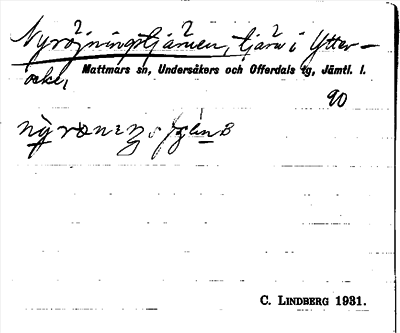 Nyröjningstjärnen, tjärn i Ytter-
ocke,
Mattmars sn, Undersåkers och Offerdals tg, Jämtl. l.
90
C. LINDBERG 1931.